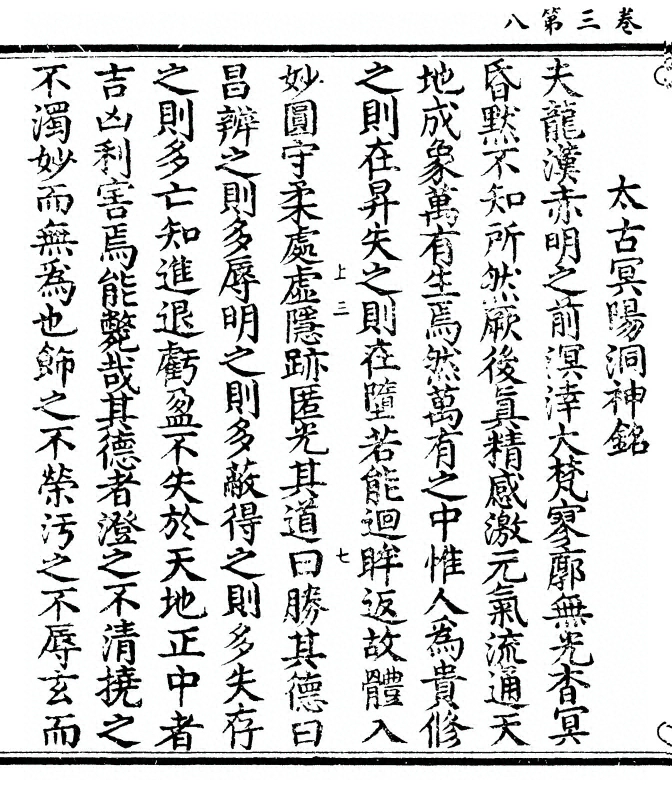 卷三第八
太古冥陽洞神銘
夫龍漢赤明之前溟涬大梵寥廓無光杳冥
昏默不知所然厥後眞精感激元氣流通天
地成象萬有生焉然萬有之中惟人為貴修
之則在昇失之則在墮若能迴眸返故體入
上三 七
妙圓守柔處虛隱跡匿光其道曰勝其德曰
昌辨之則多辱明之則多蔽得之則多失存
之則多亡知進退虧盈不失於天地正中者
吉凶利害焉能斃哉其德者澄之不清撓之
不濁妙而無為也飾之不榮汚之不辱玄而